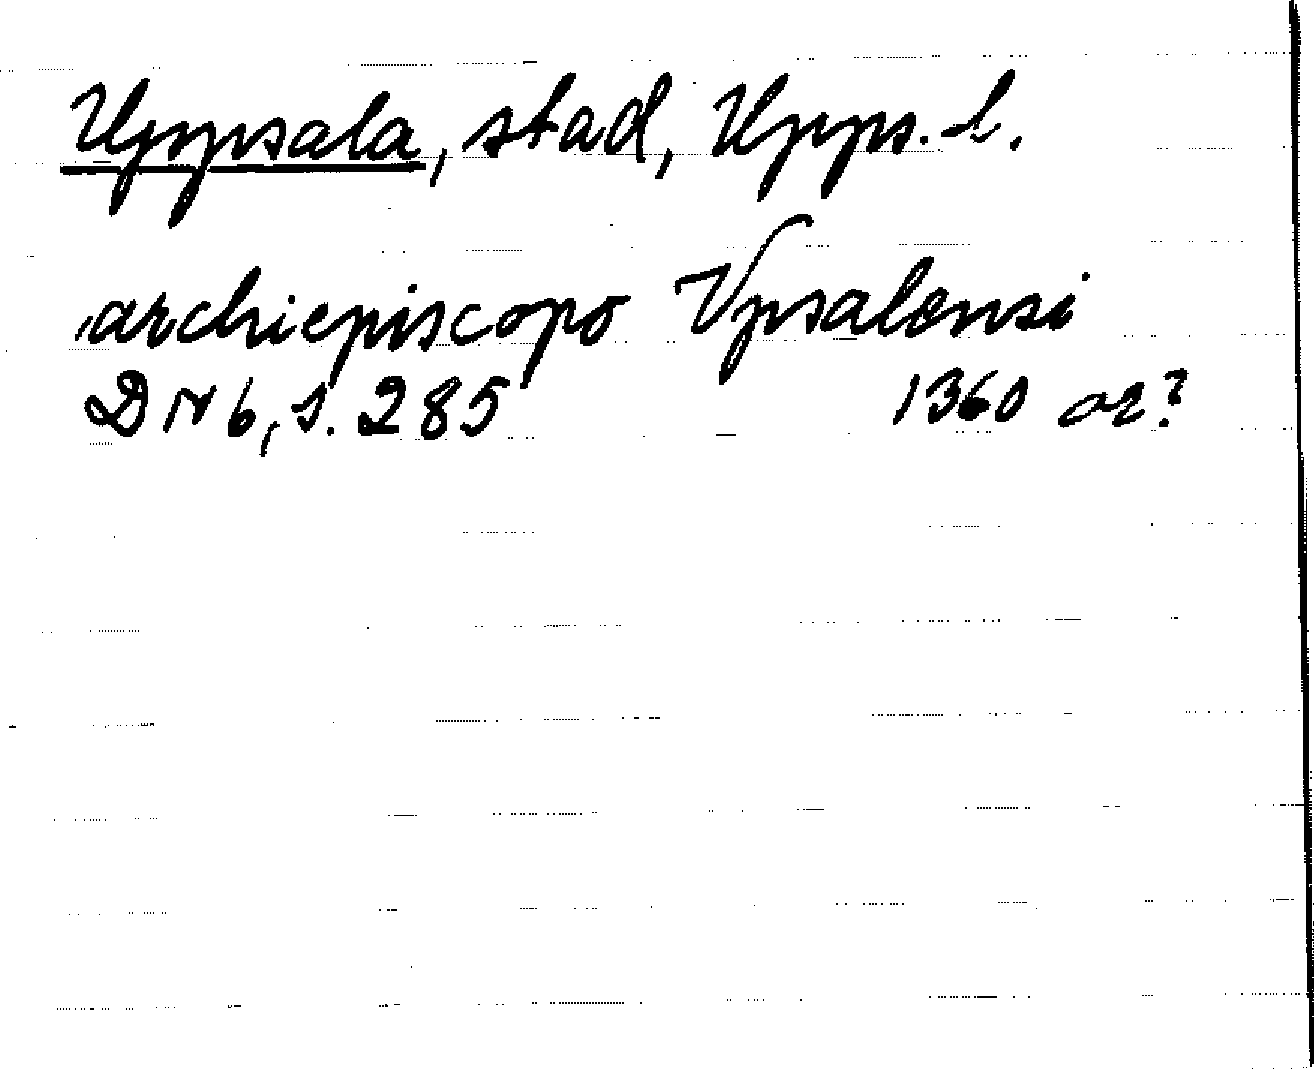 Uppsala, stad, Upps. l.
archiepiscopo Vpsalensi
DN 6, s. 285 1360 or?